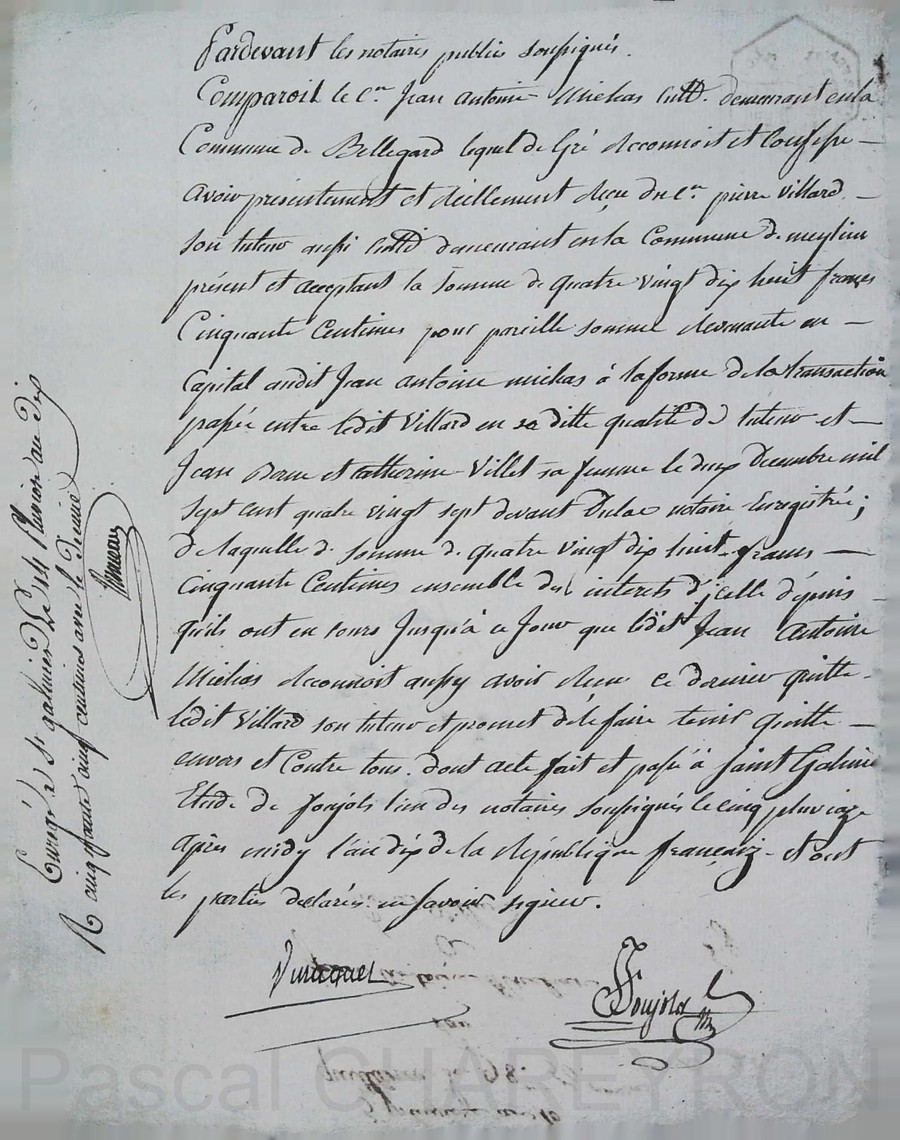 Pardevant les notaires publics soussignés.
Comparoit le C.en Jean Antoine Michas cult.r demeurant en la
Commune de Bellegard lequel de Gré Reconnoit et Confesse —
avoir présentement et Réellement Reçu du C.en pierre Villard —
son tuteur aussi cult.r demeurant en la Commune de meylieu
présent et acceptant la somme de quatre vingt dix huit francs
Cinquante Centimes pour pareille somme Revenante en —
Capital audit Jean antoine michas à la forme de la transaction
passée entre ledit Villard en sa ditte qualité de tuteur et —
Jean et Catherine Villet sa femme le dix Decembre mil
sept cent quatre vingt sept devant Dulac notaire Enregistrée;
de laquelle d. somme de quatre vingt dix huit francs —
Cinquante Centimes ensemble des interets d'icelle depuis
qu'ils ont eu cours Jusqu'à ce Jour que ledit Jean Antoine
Michas Reconnoit aussy avoir Reçu ce dernier quitte
ledit Villard son tuteur et promet de le faire tenir quitte —
envers et Contre tous. dont acte fait et passé à Saint Galmier
Etude de Jonjols l'un des notaires soussignés le cinq pluviose
après midy l'an dix de la République française et ont
les parties déclarés ne savoir signer.
Jonjols
Enreg.é à S.t galmier Le 14 Pluviose an dix
R cinq francs cinq centimes avec le decime
Pascal CHAREYRON